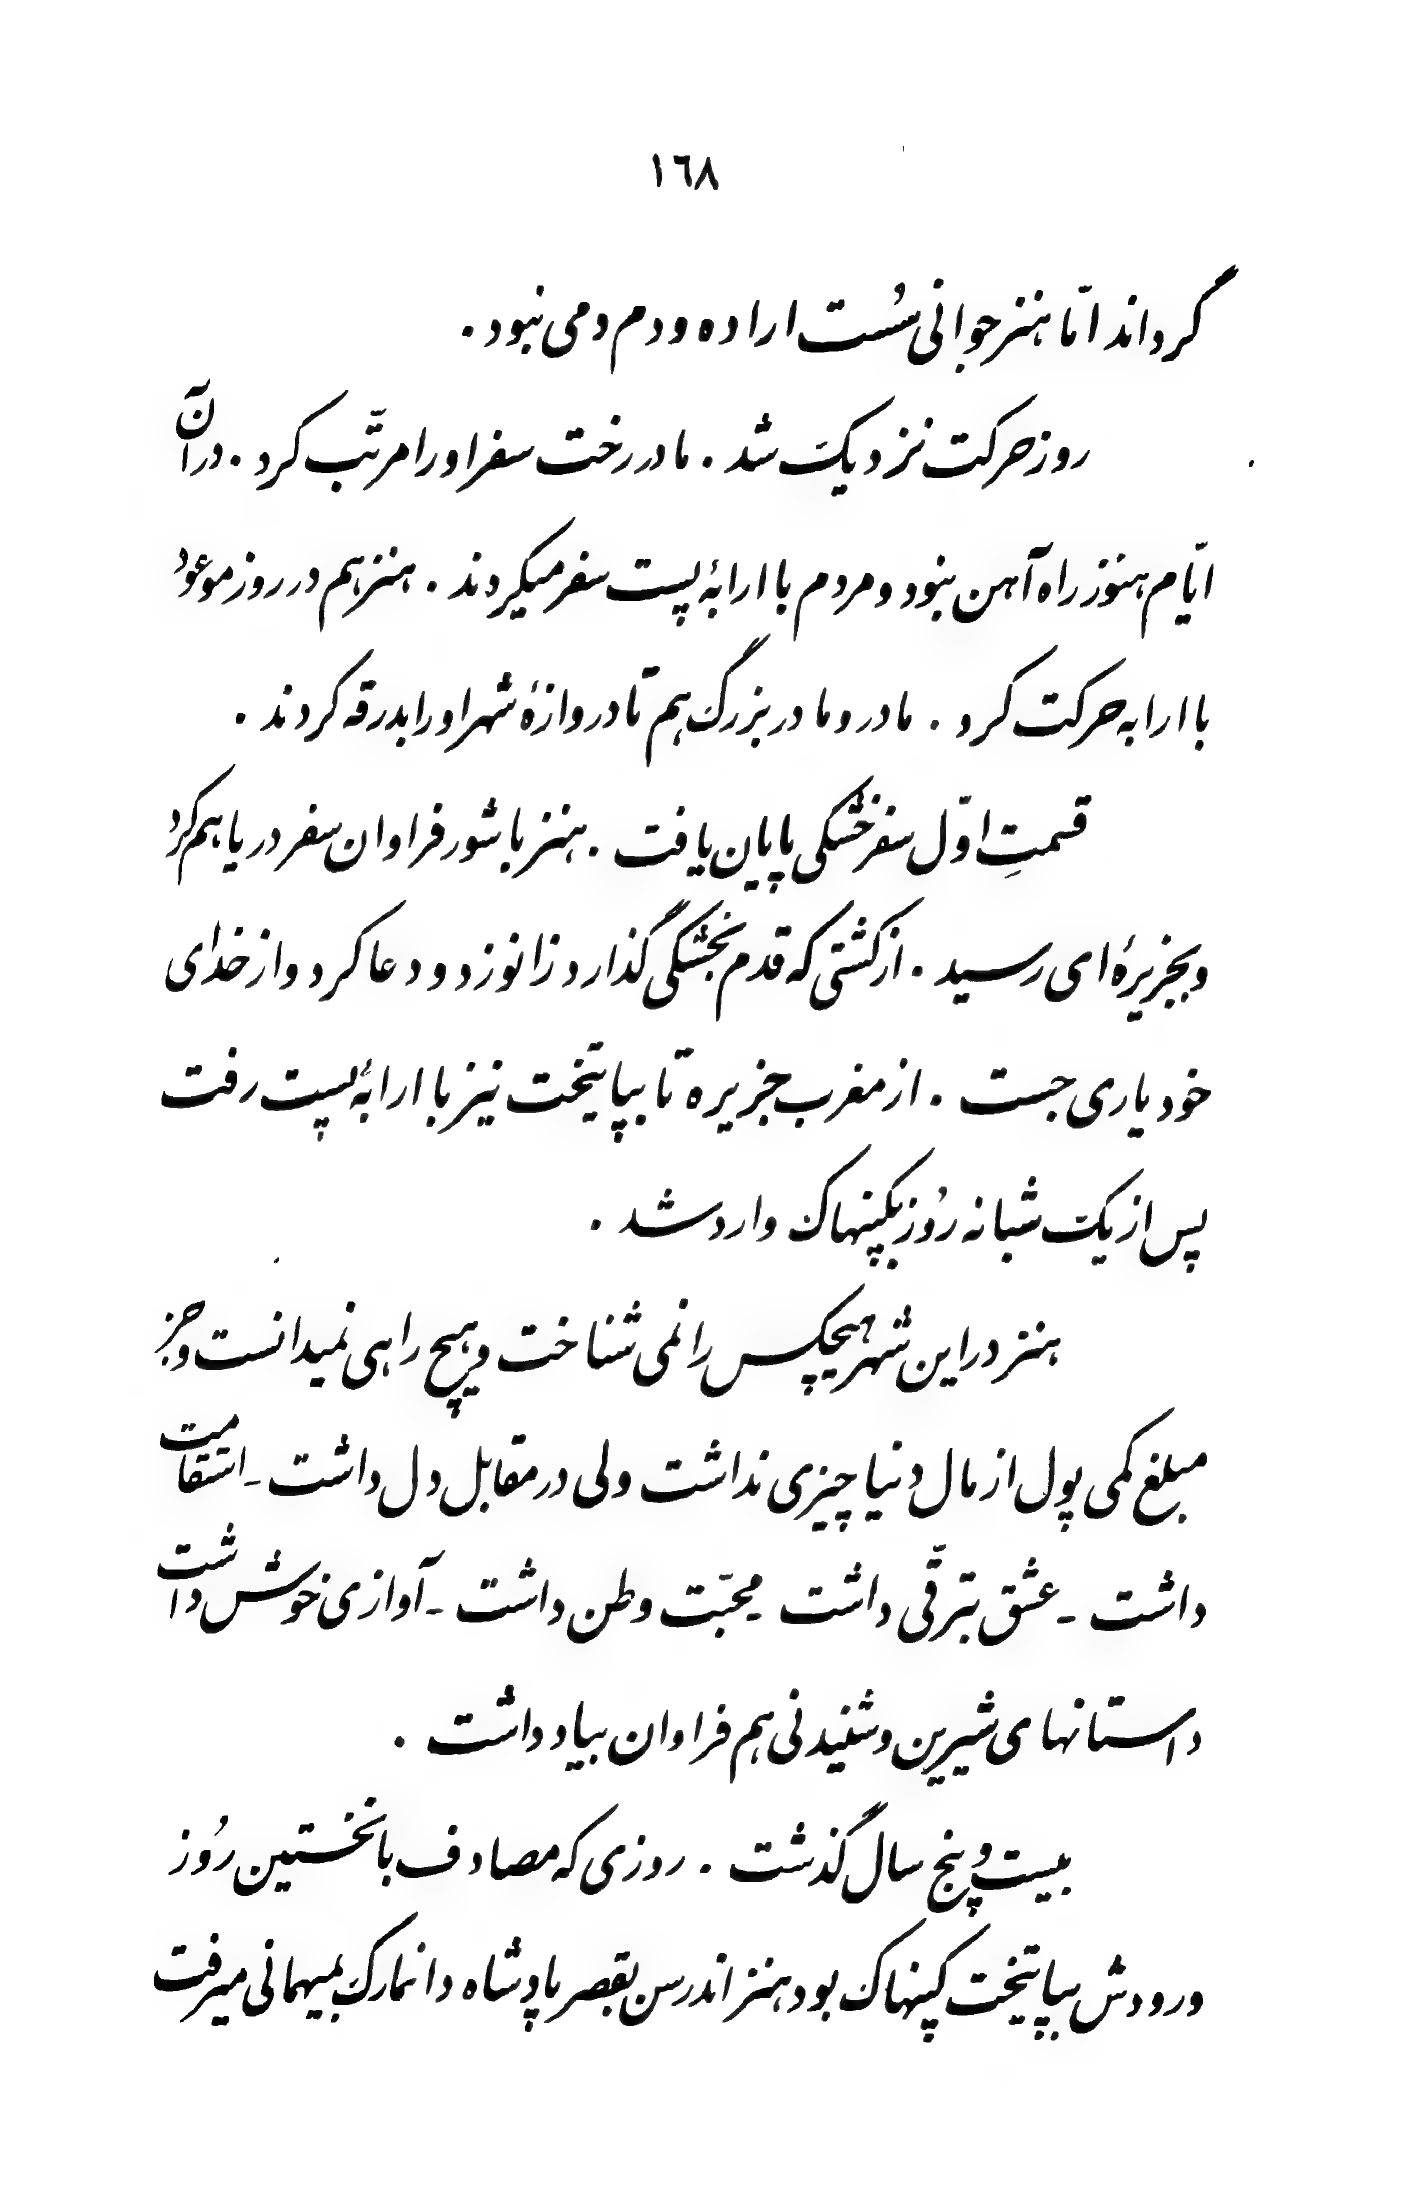 ١٦٨
گرداند امّا هنز جوانی سُست اراده و دم دمی نبود .
روز حرکت نزدیک شد . مادر رخت سفر او را مرتّب کرد . در آن
ایّام هنوز راه آهن نبود و مردم با ارابهٔ پست سفر میکردند . هنز هم در روز موعود
با ارابه حرکت کرد . مادر و مادر بزرگ هم تا دروازهٔ شهر او را بدرقه کردند .
قسمتِ اوّل سفر خشکی پایان یافت . هنز با شور فراوان سفر دریا هم کرد
و بجزیرهٔ ای رسید . از کشتی که قدم بخشکی گذارد زانو زد و دعا کرد و از خدای
خود یاری جست . از مغرب جزیره تا بپایتخت نیز با ارابهٔ پست رفت
پس از یک شبانه رُوز بکپنهاک وارد شد .
هنز در این شهر هیچکس را نمی شناخت و هیچ راهی نمیدانست و جز
مبلغ کمی پول از مال دنیا چیزی نداشت ولی در مقابل دل داشت ـ استقامت
داشت ـ عشق بترقّی داشت ـ محبّت وطن داشت ـ آوازی خوش داشت
داستانهای شیرین و شنیدنی هم فراوان بیاد داشت .
بیست و پنج سال گذشت . روزی که مصادف با نخستین رُوز
ورودش بپایتخت کپنهاک بود هنز اندرسن بقصر پادشاه دانمارک بمیهمانی میرفت